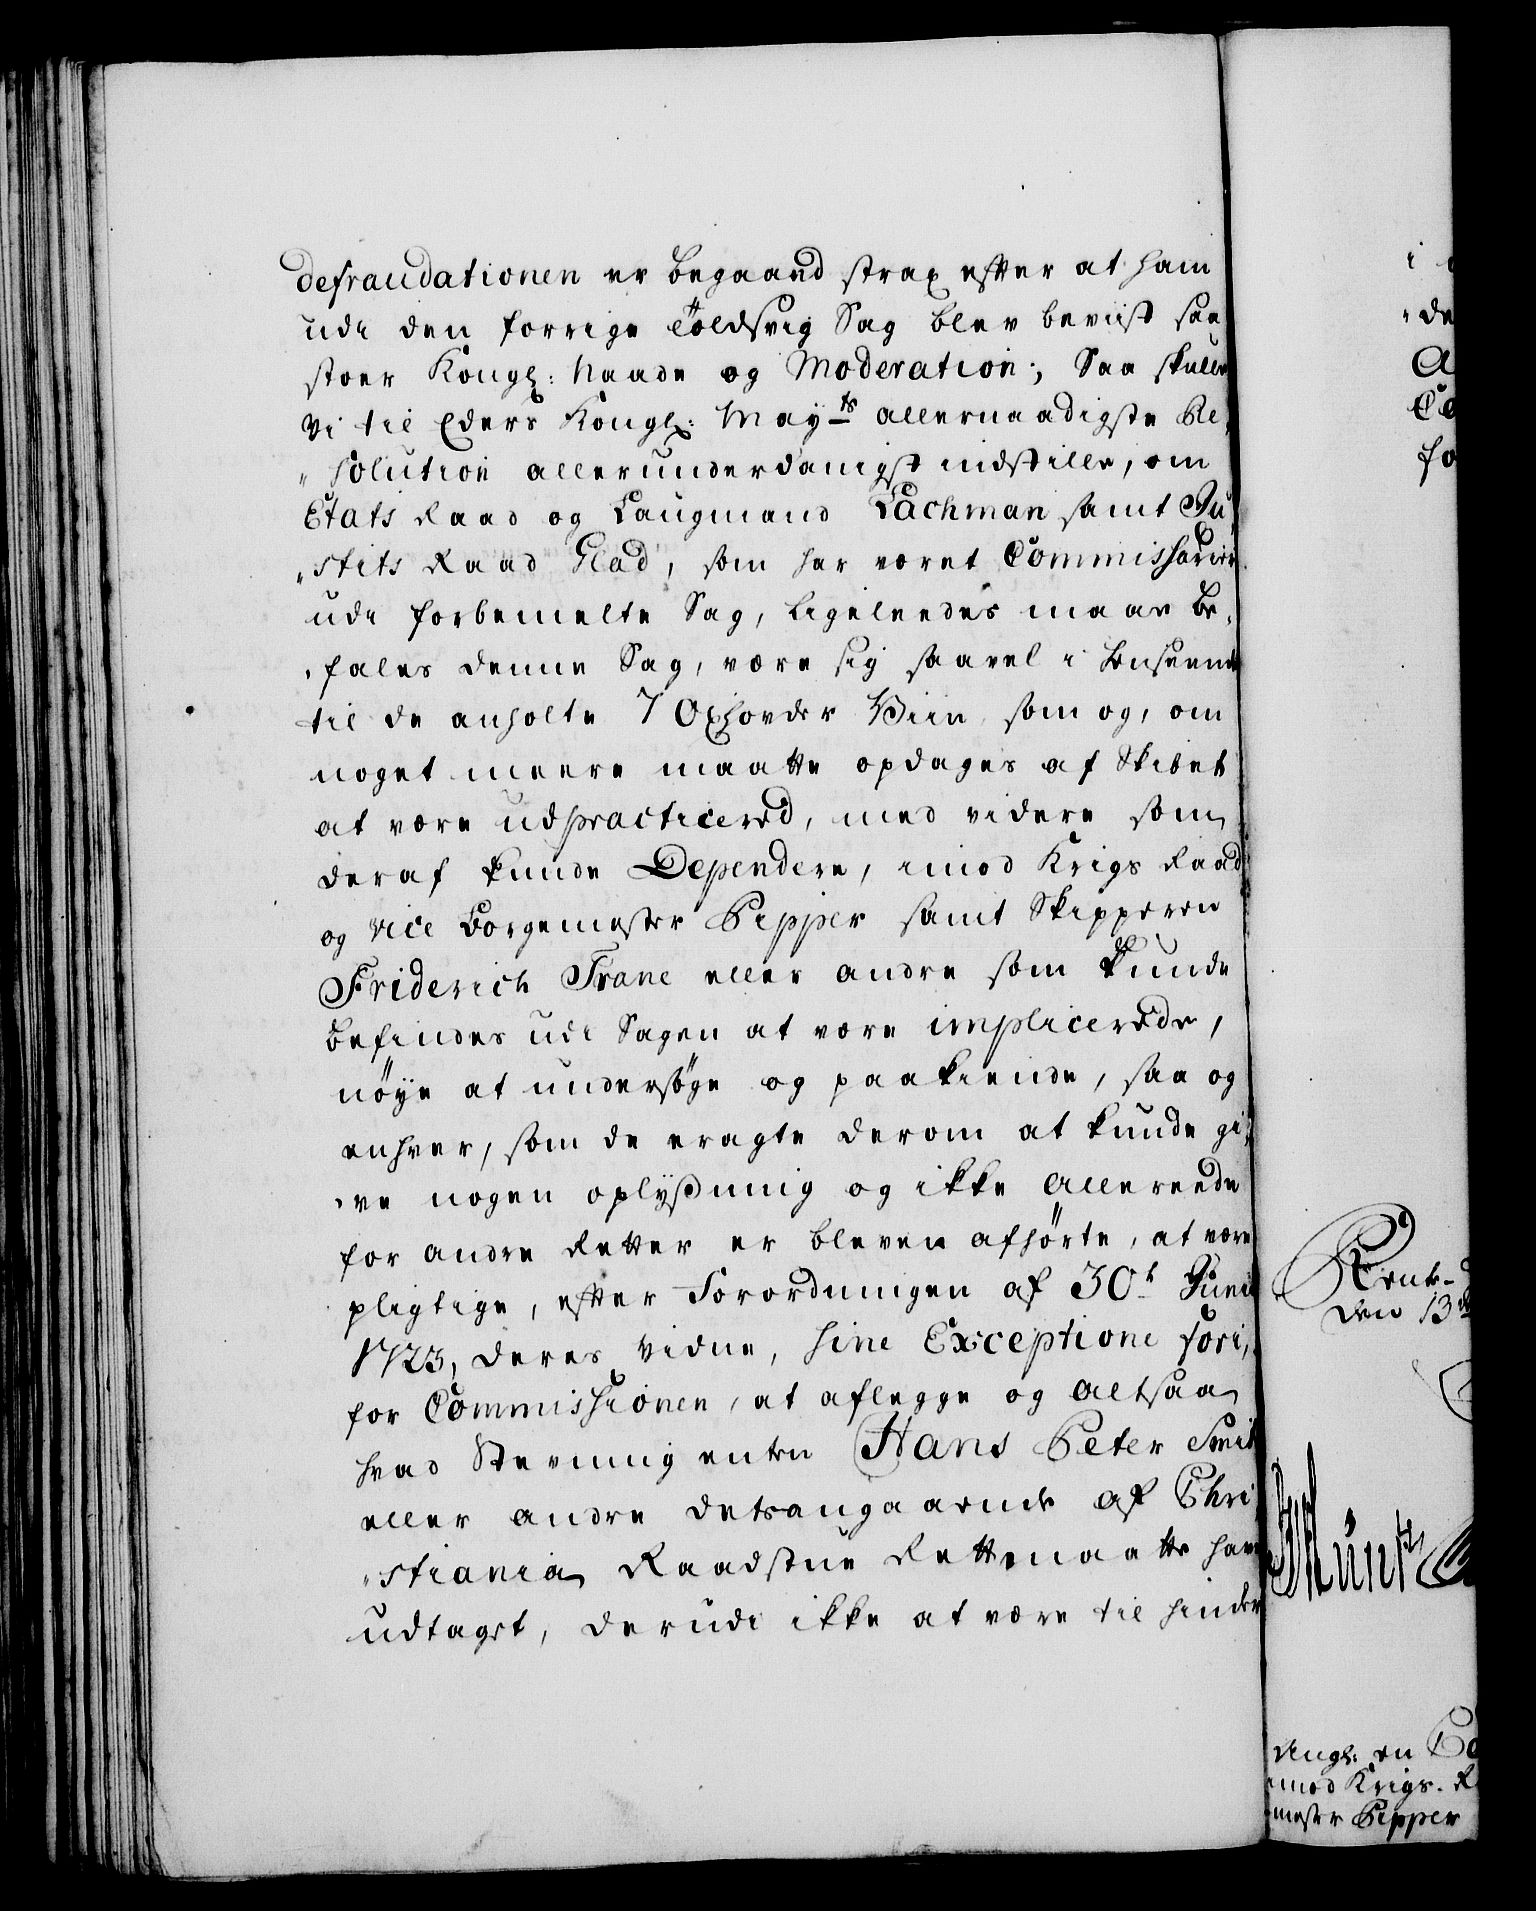 defraudationen er begaaed strax efter at ham
udi den forrige Toldsvig Sag blev beviist saa
stoer Kongl: Naade og Moderation; Saa skulle
Vi til Eders Kongl: Mayts allernaadigste Re,
„solution allerunderdanigst indstille, om
Etats Raad og Laugmand Lachman samt Ju„
„stits Raad Glad, som har været Commissarier
udi forbemelte Sag, ligeleedes maae be„
„fales denne Sag, være sig saavel i henseende
til de anholte 7 Oxhovder Viin, som og, om
noget meere maatte opdages af Skibet
at være udpracticered, med videre som
deraf kunde Dependere, imod Krigs Raad
og Vice Borgemester Pepper samt Skipperen
Friderich Trane eller andre som kunde
befindes udi Sagen at være implicerede,
nöye at undersöge og paakiende, saa og
enhver, som de eragte derom at kunde gi„
„ve nogen oplysning og ikke allereede
for andre Retter er bleven afhörte, at være
pligtige, efter Forordningen af 30t Junii
1723, deres Vidne, sine Exceptione fori,
for Commissionen, at aflegge og altsaa
hvad Stevning enten Hans Peter Smit
eller andre detsangaaende af Chri„
„stiania Raadstue Rett maatte have
udtaget, derudi ikke at være til hinder
Rente-
den 13
Angl: en
imod Krigs-R
mester Pepper